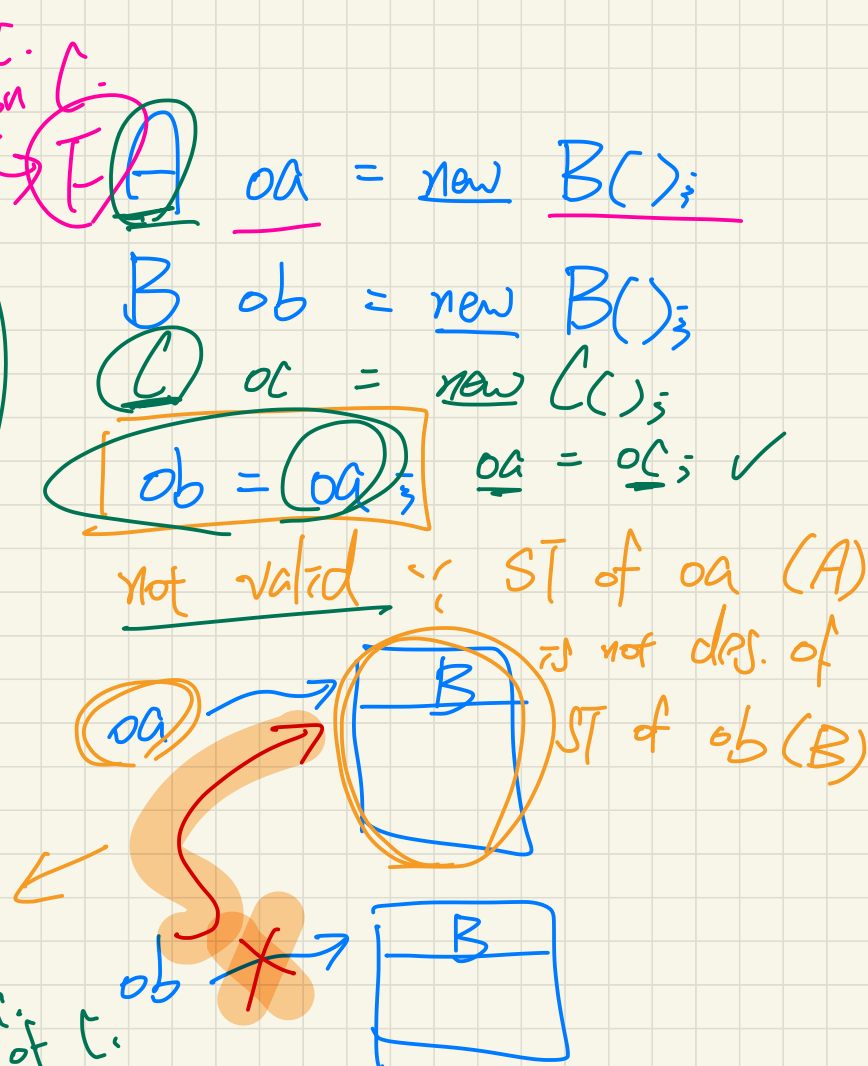 A oa = new B();
B ob = new B();
C oc = new C();
ob = oa; oa = oc; ✓
not valid ∵ ST of oa (A)
is not des. of
ST of ob (B)
B
oa
B
ob
of C.